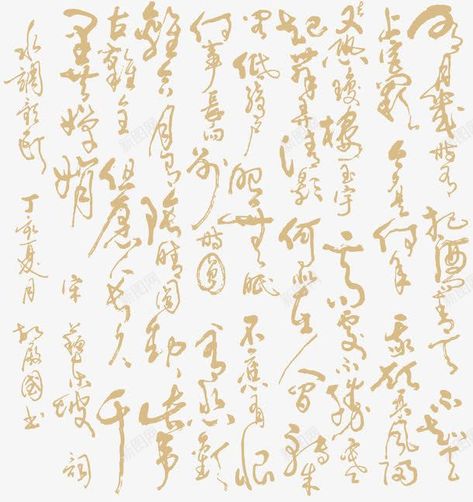 明月幾時有 把酒問青天 不知天
上宮闕 今夕是何年 我欲乘風歸
又恐瓊樓玉宇 高處不勝寒
起舞弄清影 何似在人間 轉朱
閣 低綺戶 照無眠 不應有恨
何事長向別時圓 人有悲歡
離合 月有陰晴圓缺 此事
古難全 但願人長久 千
里共嬋娟 宋 蘇東坡 詞
水調歌頭 丁亥夏月 國書